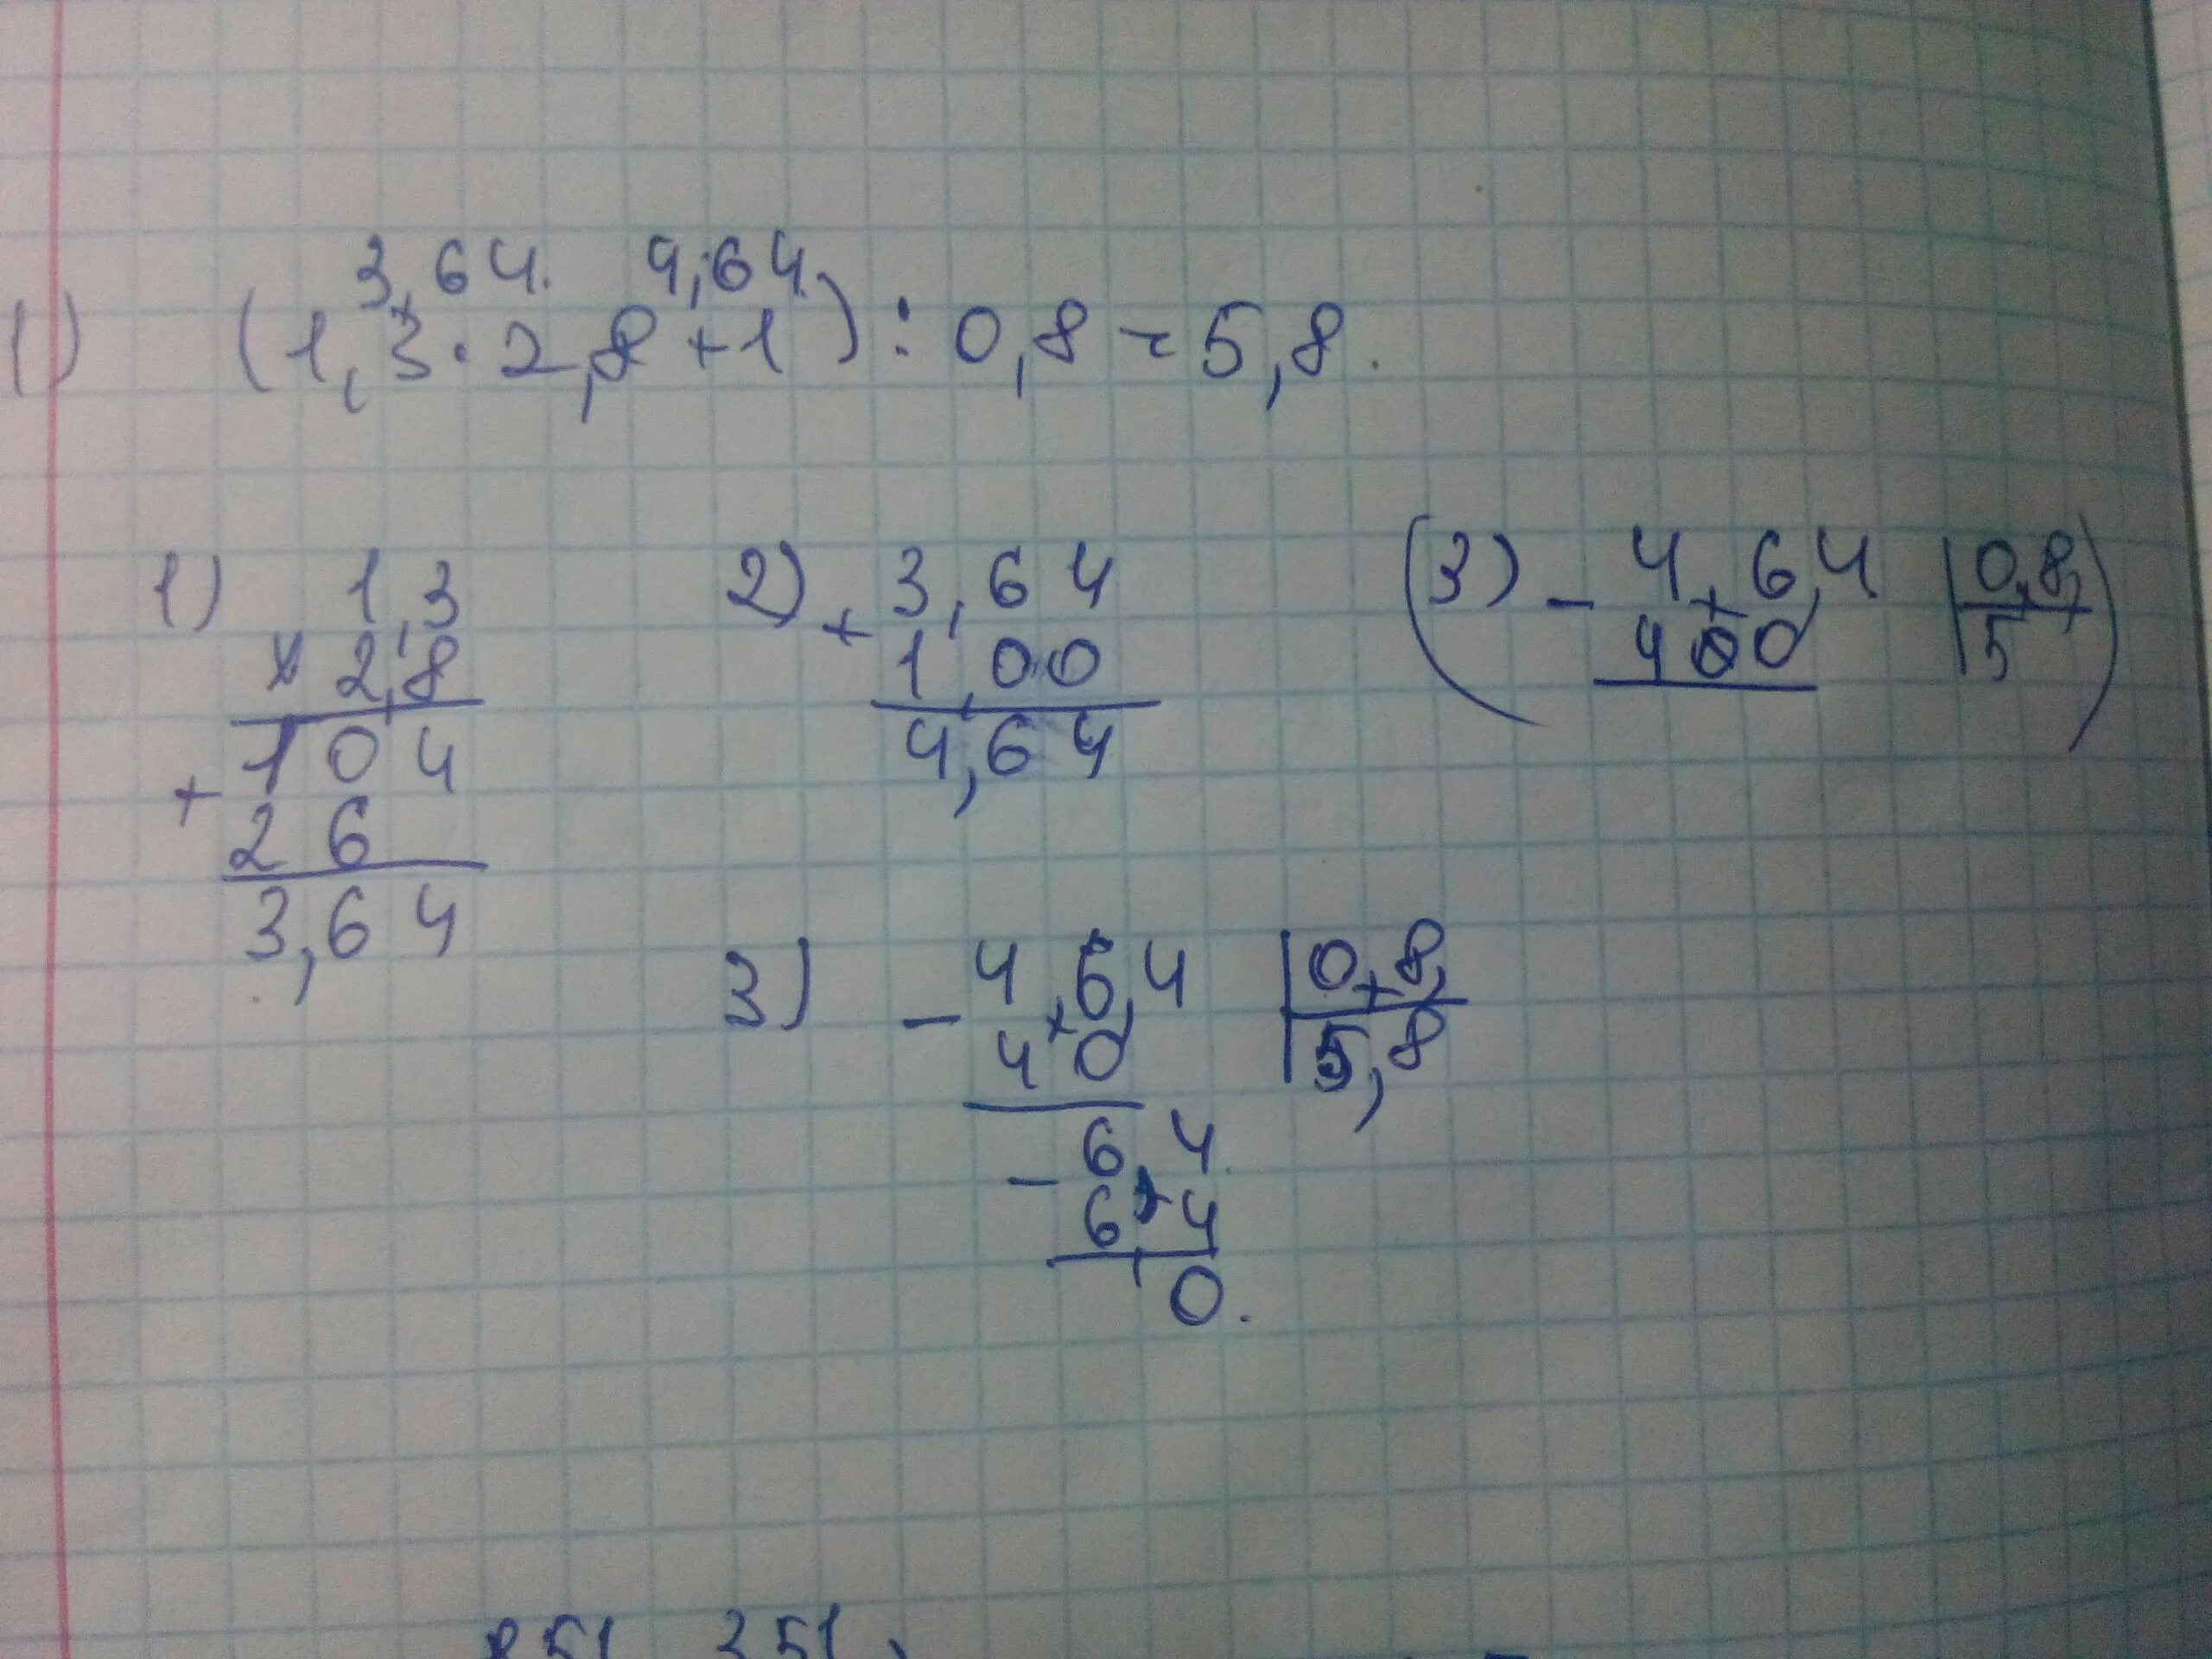 3,64 4,64
1) (1,3 · 2,8 + 1) : 0,8 = 5,8.
1) 1,3
× 2,8
+ 104
26
3,64
2) + 3,64
1,00
4,64
(3) - 4,6,4 | 0,8,)
400 | 5
3) - 4,6,4 | 0,8,
40 | 5,8
- 6,4
6,4
0.